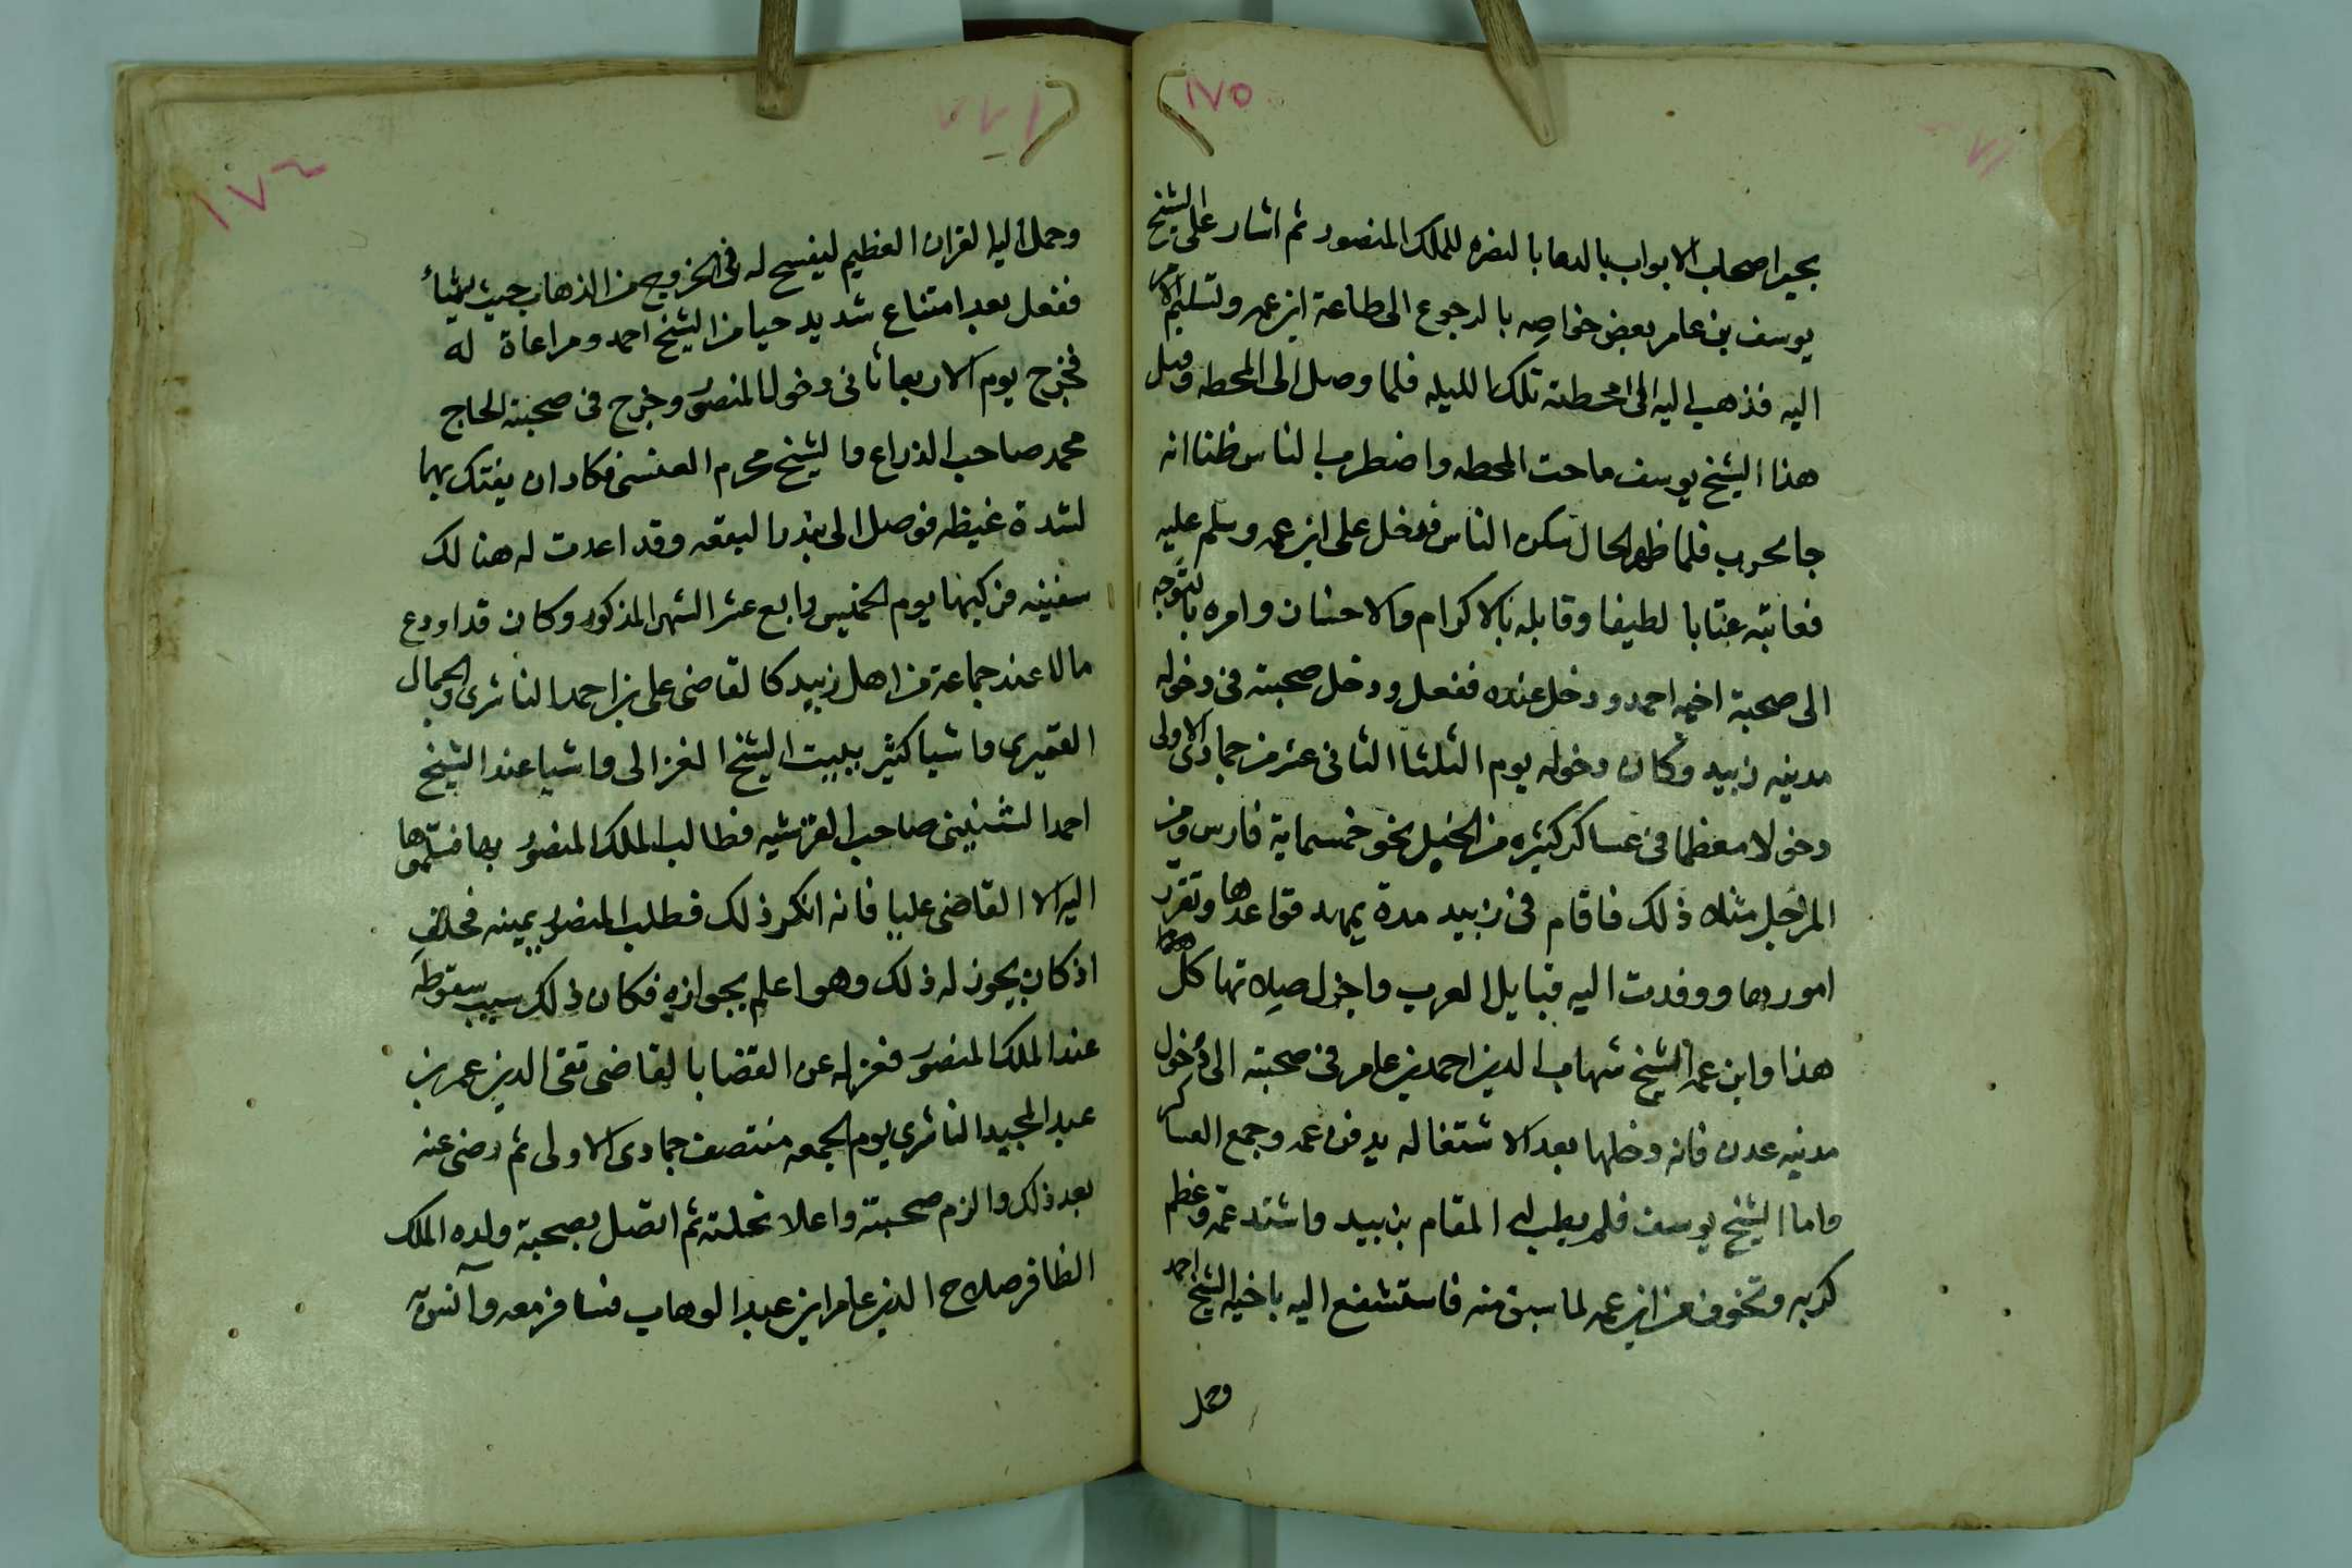 ١٧٥
بحيرا صحاب الابواب بالدعا بالنصره للملك المنصور ثم اشار على الشيخ
يوسف بن عامر بعض خواصه بالرجوع الى طاعة ابن عمه وتسليم الامر
اليه فذهب اليه الى محطته تلك الليله فلما وصل الى المحطه وقيل
هذا الشيخ يوسف ماجت المحطه واضطرب الناس ظنا انه
جا لحرب فلما ظهر الحال سكن الناس فدخل على ابن عمه وسلم عليه
فعاتبه عتابا لطيفا وقابله بالاكرام والاحسان وامره بالتوجه
الى صحبة اخيه احمد ودخل عنده ففعل ودخل صحبته في دخوله
مدينه زبيد وكان دخوله يوم الثلثا الثاني عشر من جمادى الاولى
دخولا معظما في عساكر كثيره من الخيل نحو خمسماية فارس ومن
المراجل مثلاه ذلك فاقام في زبيد مدة يمهد قواعدها وتقرر
امورها ووفدت اليه قبايل العرب واجزل صلاتها كل
هذا وابن عمه الشيخ شهاب الدين احمد بن عامر في صحبته الى دخول
مدينه عدن فانه دخلها بعد الاشتغاله بدفن عمه وجمع العساكر
واما الشيخ يوسف فلم يطب له المقام بزبيد واشتد غمه وعظم
كربه وتخوف من ابن عمه لما سبق منه فاستشفع اليه باخيه الشيخ احمد
وحمل
١٧٦
وحمل اليه القران العظيم ليفسح له في الخروج من الذهاب حيث يشأ
ففعل بعد امتناع شديد حيا من الشيخ احمد ومراعاة له
فخرج يوم الاربعا ثاني دخول المنصور وخرج في صحبته الحاج
محمد صاحب الذراع والشيخ محرم العنسي فكاد ان يفتك بهما
لشدة غيظه فوصل الى بندر البقعه وقد اعدت له هنالك
سفينه فركبها يوم الخميس رابع عشر الشهر المذكور وكان قد اودع
مالا عند جماعة من اهل زبيد كالقاضي علي بن احمد الناشري والجمال
القميري واشيا كثير ببيت الشيخ الغزالي واشيا عند الشيخ
احمد الشنيني صاحب القرشيه فطالب الملك المنصور بها فسلموها
اليه الا القاضي عليا فانه انكر ذلك فطلب المنصور يمينه فحلف
اذ كان يجوز له ذلك وهو اعلم بجوازه فكان ذلك سبب سقوطه
عند الملك المنصور فعزله عن القضا بالقاضي تقي الدين عمر بن
عبد المجيد الناشري يوم الجمعه منتصف جمادى الاولى ثم رضي عنه
بعد ذلك والزم صحبته واعلا نحلته ثم اتصل بصحبة ولده الملك
الظافر صلاح الدين عامر ابن عبد الوهاب فسافر معه وآنسه